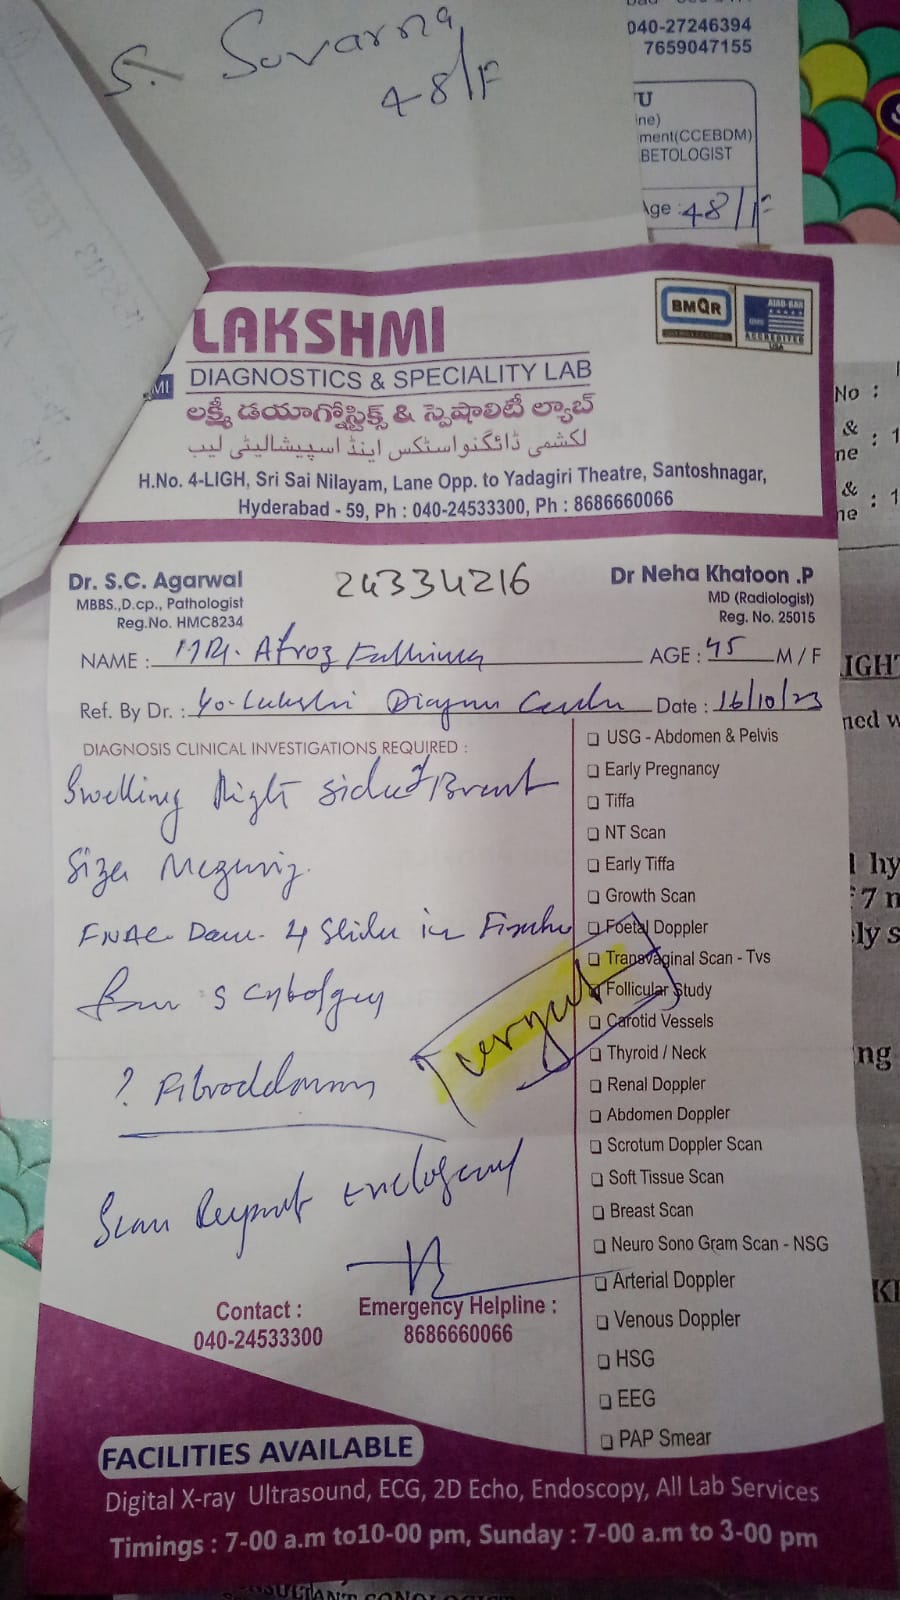 S. Suvarna
48/F
040-27246394
7659047155
TU
ine)
ment(CCEBDM)
BETOLOGIST
Age : 48/F
LAKSHMI
DIAGNOSTICS & SPECIALITY LAB
లక్ష్మీ డయాగ్నోస్టిక్స్ & స్పెషాలిటీ ల్యాబ్
لکشمی ڈائگنواسٹکس اینڈ اسپیشالیٹی لیب
H.No. 4-LIGH, Sri Sai Nilayam, Lane Opp. to Yadagiri Theatre, Santoshnagar,
Hyderabad - 59, Ph : 040-24533300, Ph : 8686660066
BMQR
ACCREDITED
No :
&
ne : 1
&
ne : 1
Dr. S.C. Agarwal
MBBS.,D.cp., Pathologist
Reg.No. HMC8234
24334216
Dr Neha Khatoon .P
MD (Radiologist)
Reg. No. 25015
NAME : Afroz AGE : 45 M / F
Ref. By Dr. : Date : 16/10/23
DIAGNOSIS CLINICAL INVESTIGATIONS REQUIRED :
Swelling Right side of Breast
Size
FNAC 4 Slides in
for s cytology
urgent
? Fibroadenoma
Scan Report
USG - Abdomen & Pelvis
Early Pregnancy
Tiffa
NT Scan
Early Tiffa
Growth Scan
Foetal Doppler
Transvaginal Scan - Tvs
Follicular Study
Carotid Vessels
Thyroid / Neck
Renal Doppler
Abdomen Doppler
Scrotum Doppler Scan
Soft Tissue Scan
Breast Scan
Neuro Sono Gram Scan - NSG
Arterial Doppler
Venous Doppler
HSG
EEG
PAP Smear
Contact :
040-24533300
Emergency Helpline :
8686660066
FACILITIES AVAILABLE
Digital X-ray Ultrasound, ECG, 2D Echo, Endoscopy, All Lab Services
Timings : 7-00 a.m to10-00 pm, Sunday : 7-00 a.m to 3-00 pm
IGHT
ned w
l hy
f 7 m
ly s
ng